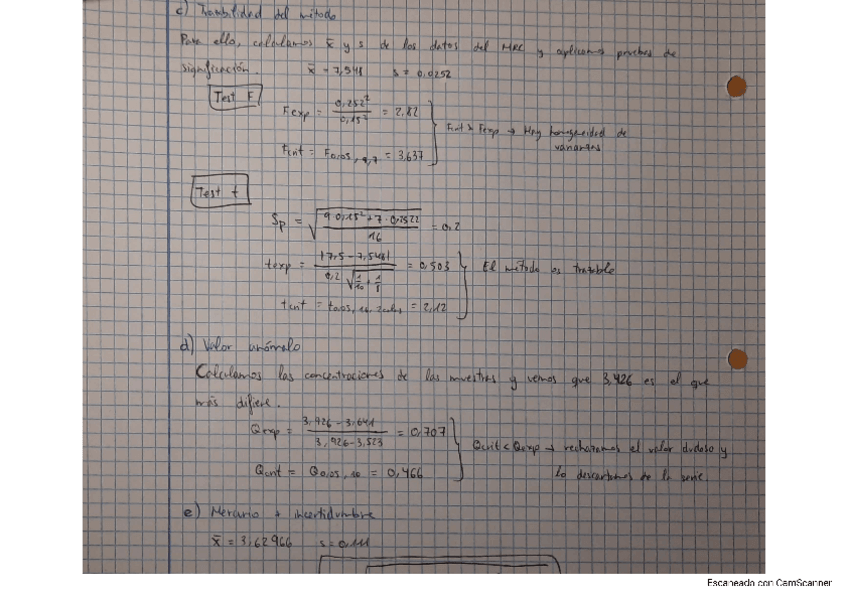 c) Trazabilidad del método
Para ello, calculamos x̄ y s de los datos del MRC y aplicamos pruebas de
significación. x̄ = 7,548 s = 0,0252
Test F
Fexp = 0,252² / 0,15² = 2,82
Fcrit > Fexp → Hay homogeneidad de
varianzas
Fcrit = F0,05, 9,7 = 3,637
Test t
Sp = √(9·0,15² + 7·0,252² / 16) = 0,2
texp = |7,5 - 7,548| / 0,2 √(1/10 + 1/8) = 0,503
El método es trazable
tcrit = t0,05, 16, 2colas = 2,12
d) Valor anómalo
Calculamos las concentraciones de las muestras y vemos que 3,926 es el que
más difiere.
Qexp = 3,926 - 3,641 / 3,926 - 3,523 = 0,707
Qcrit < Qexp → rechazamos el valor dudoso y
lo descartamos de la serie.
Qcrit = Q0,05, 10 = 0,466
e) Mercurio + incertidumbre
x̄ = 3,62966 s = 0,111
Escaneado con CamScanner